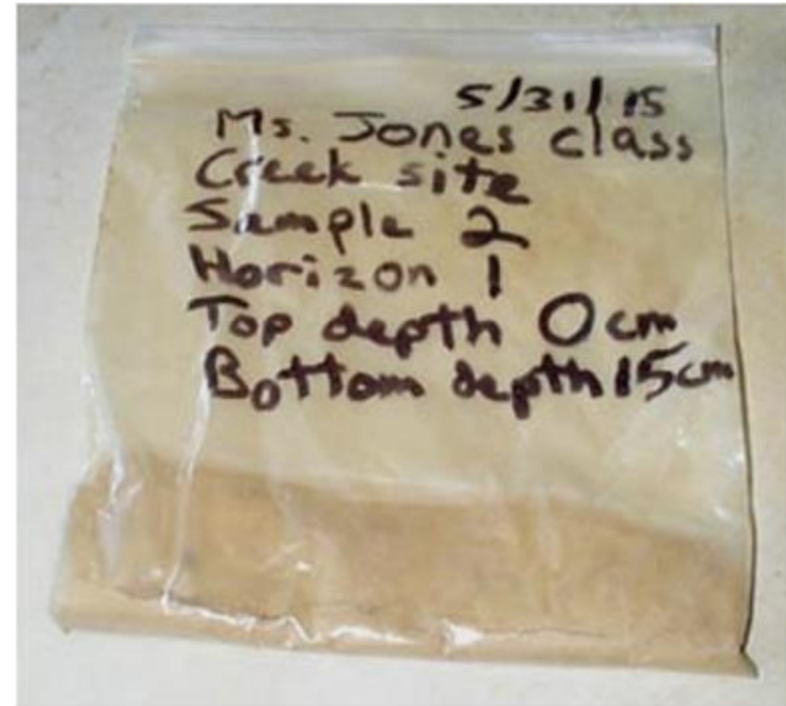 5/31/15
Ms. Jones class
Creek site
Sample 2
Horizon 1
Top depth 0 cm
Bottom depth 15cm